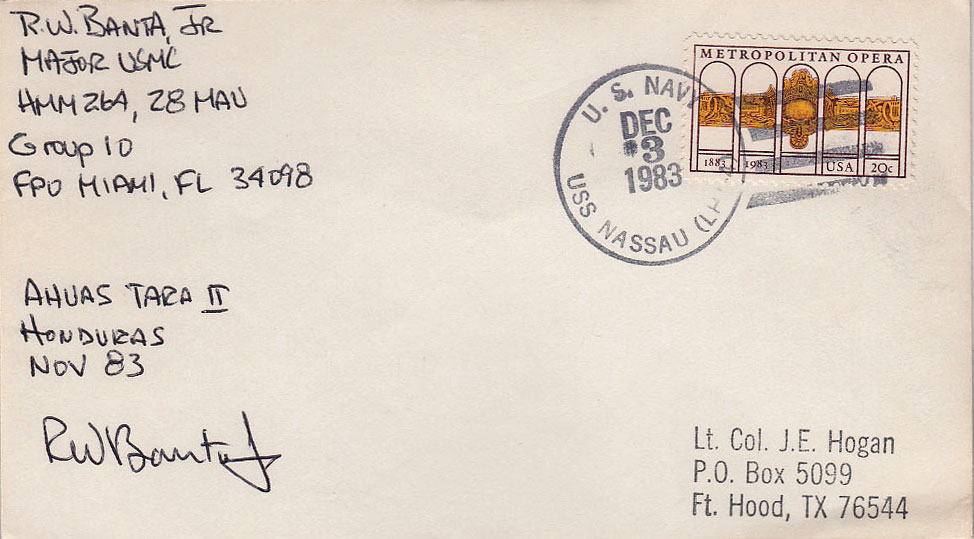 R.W. BANTA, JR
MAJOR USMC
HMM 264, 28 MAU
Group 10
FPO MIAMI, FL 34098
AHUAS TARA II
HONDURAS
NOV 83
RW Banta Jr
METROPOLITAN OPERA
1883 1983 USA 20c
U. S. NAVY
DEC
3
1983
USS NASSAU (LH
Lt. Col. J.E. Hogan
P.O. Box 5099
Ft. Hood, TX 76544